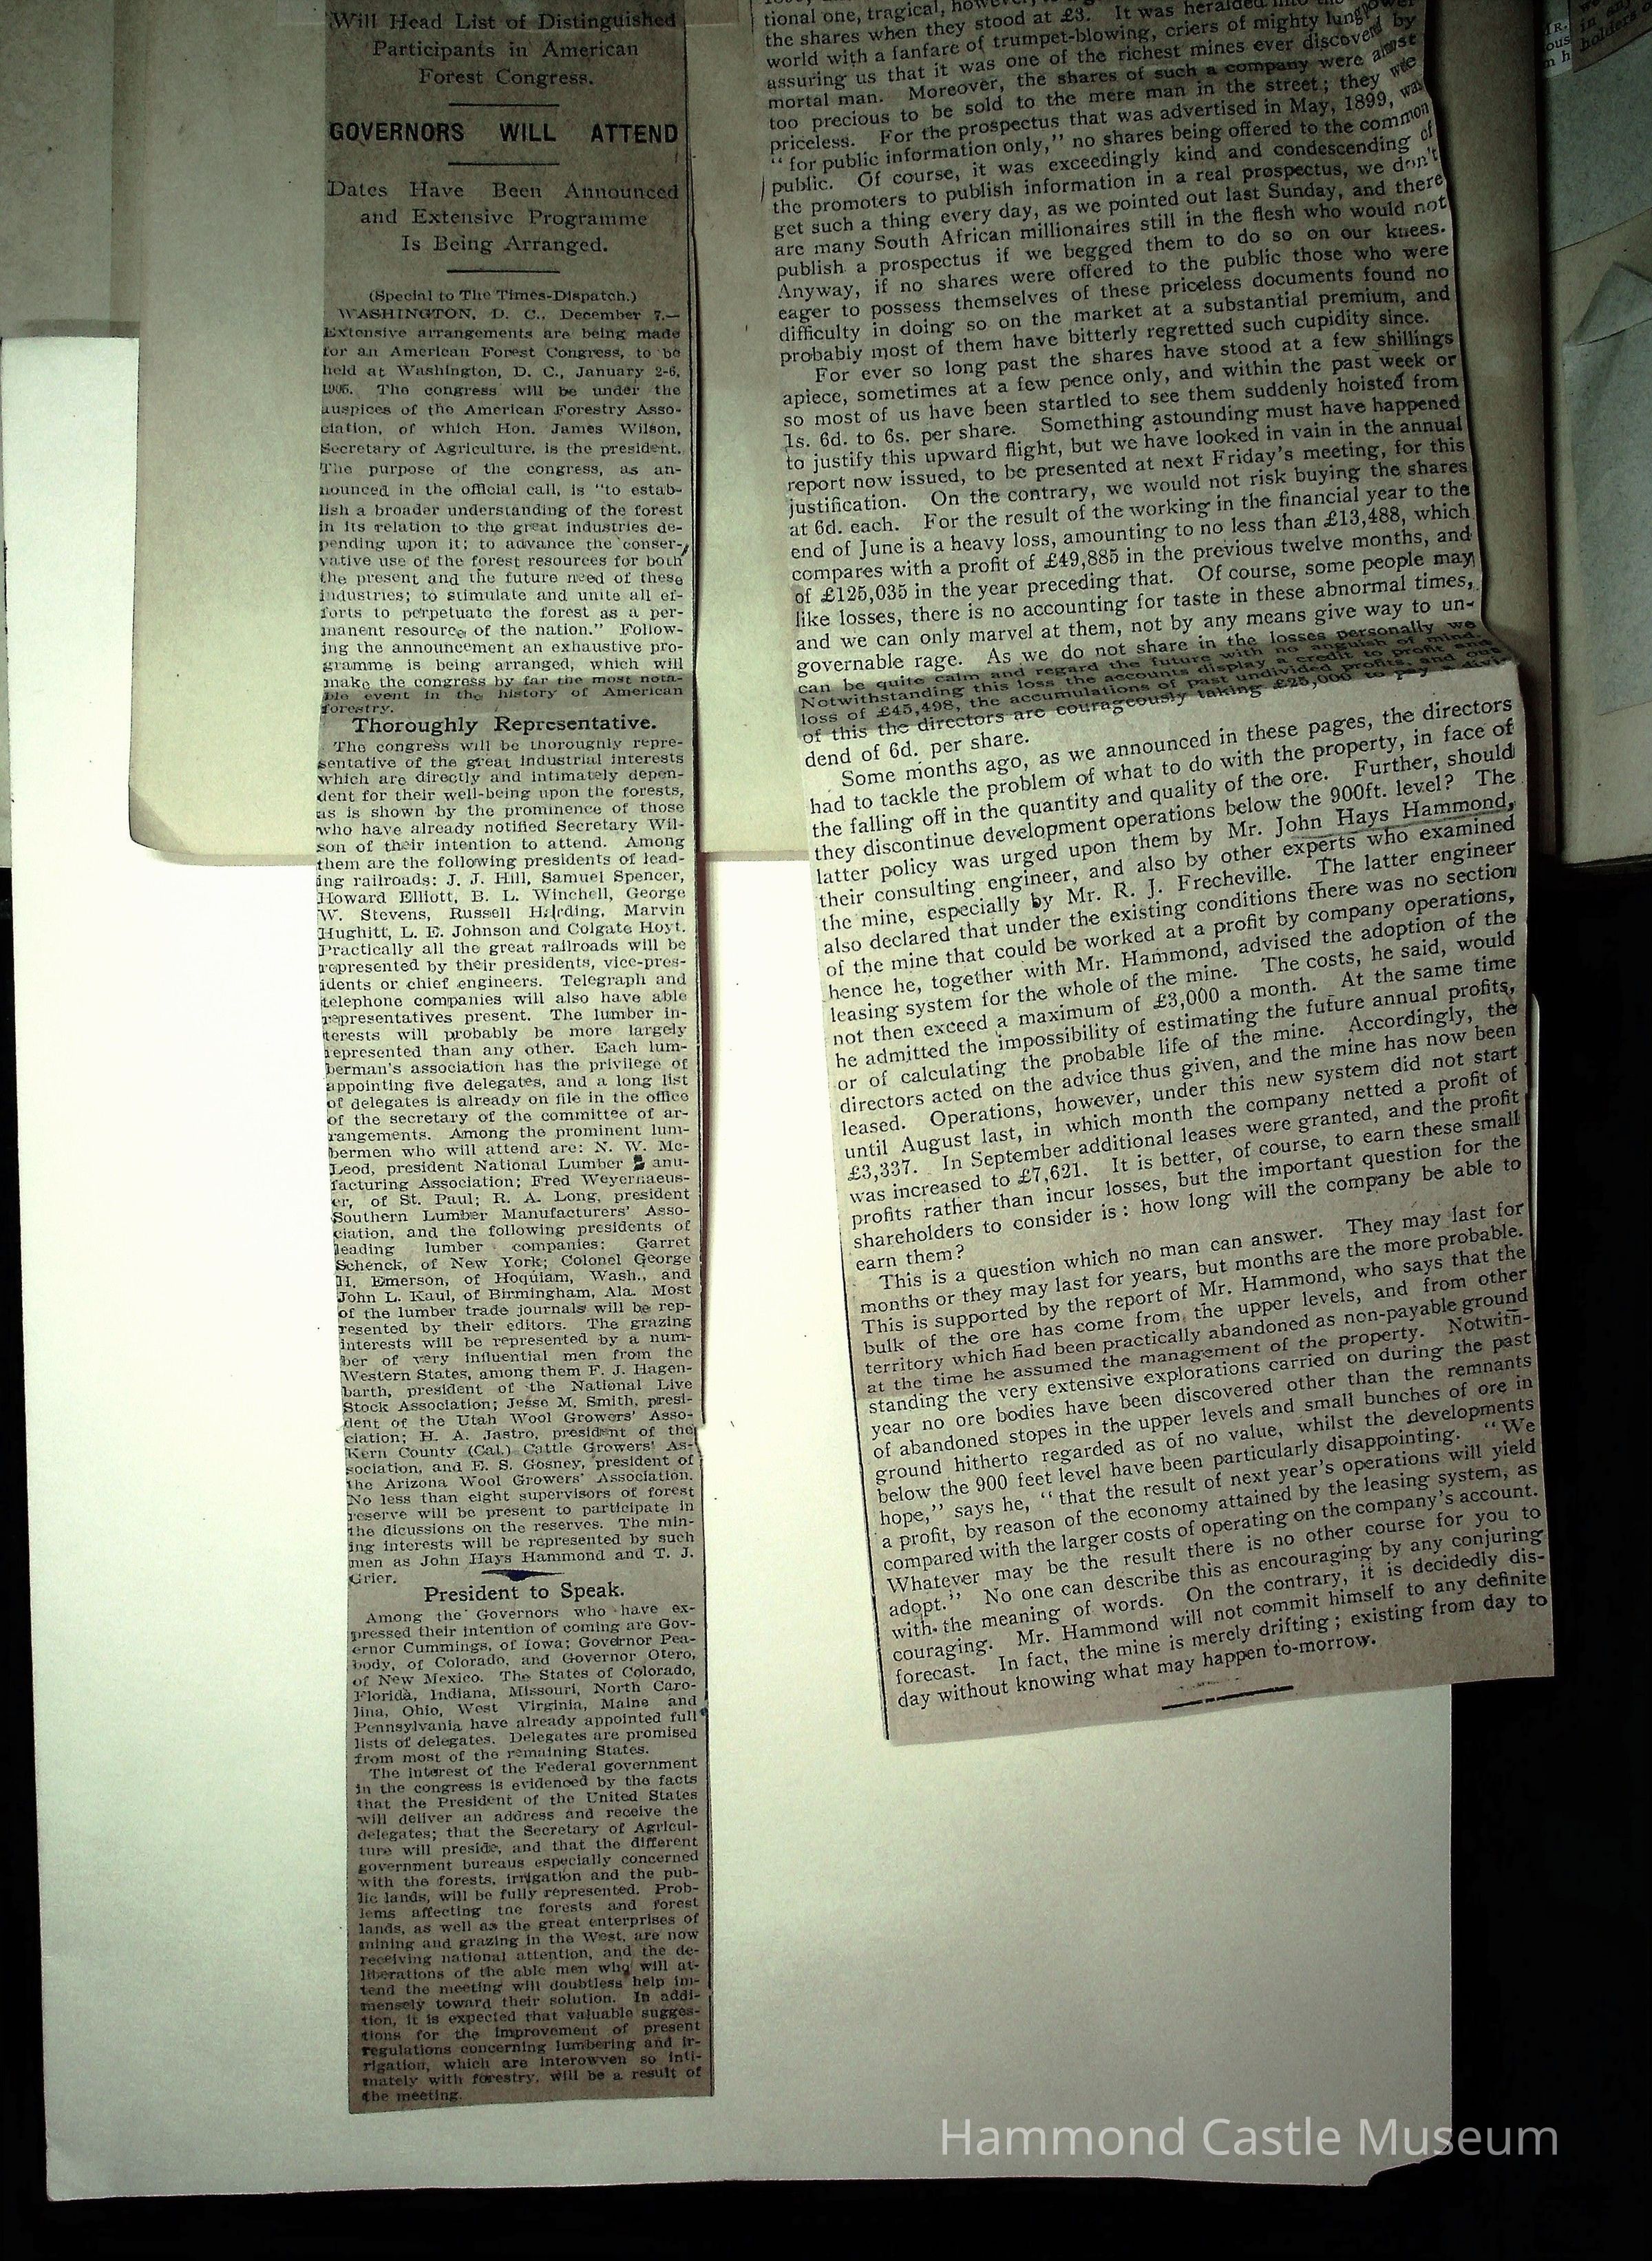 Will Head List of Distinguished
Participants in American
Forest Congress.
GOVERNORS WILL ATTEND
Dates Have Been Announced
and Extensive Programme
Is Being Arranged.
(Special to The Times-Dispatch.)
WASHINGTON, D. C., December 7.—
Extensive arrangements are being made
for an American Forest Congress, to be
held at Washington, D. C., January 2-6,
1905. The congress will be under the
auspices of the American Forestry Asso-
ciation, of which Hon. James Wilson,
Secretary of Agriculture, is the president.
The purpose of the congress, as an-
nounced in the official call, is "to estab-
lish a broader understanding of the forest
in its relation to the great industries de-
pending upon it; to advance the conser-
vative use of the forest resources for both
the present and the future need of these
industries; to stimulate and unite all ef-
forts to perpetuate the forest as a per-
manent resource of the nation." Follow-
ing the announcement an exhaustive pro-
gramme is being arranged, which will
make the congress by far the most nota-
ble event in the history of American
forestry.
Thoroughly Representative.
The congress will be thoroughly repre-
sentative of the great industrial interests
which are directly and intimately depen-
dent for their well-being upon the forests,
as is shown by the prominence of those
who have already notified Secretary Wil-
son of their intention to attend. Among
them are the following presidents of lead-
ing railroads: J. J. Hill, Samuel Spencer,
Howard Elliott, B. L. Winchell, George
W. Stevens, Russell Harding, Marvin
Hughitt, L. E. Johnson and Colgate Hoyt.
Practically all the great railroads will be
represented by their presidents, vice-pres-
idents or chief engineers. Telegraph and
telephone companies will also have able
representatives present. The lumber in-
terests will probably be more largely
represented than any other. Each lum-
berman's association has the privilege of
appointing five delegates, and a long list
of delegates is already on file in the office
of the secretary of the committee of ar-
rangements. Among the prominent lum-
bermen who will attend are: N. W. Mc-
Leod, president National Lumber anu-
facturing Association; Fred Weyerhaeus-
er, of St. Paul; R. A. Long, president
Southern Lumber Manufacturers' Asso-
ciation, and the following presidents of
leading lumber companies: Garret
Schenck, of New York; Colonel George
H. Emerson, of Hoquiam, Wash., and
John L. Kaul, of Birmingham, Ala. Most
of the lumber trade journals will be rep-
resented by their editors. The grazing
interests will be represented by a num-
ber of very influential men from the
Western States, among them F. J. Hagen-
barth, president of the National Live
Stock Association; Jesse M. Smith, presi-
dent of the Utah Wool Growers' Asso-
ciation; H. A. Jastro, president of the
Kern County (Cal.) Cattle Growers' As-
sociation, and E. S. Gosney, president of
the Arizona Wool Growers' Association.
No less than eight supervisors of forest
reserve will be present to participate in
the dicussions on the reserves. The min-
ing interests will be represented by such
men as John Hays Hammond and T. J.
Grier.
President to Speak.
Among the Governors who have ex-
pressed their intention of coming are Gov-
ernor Cummings, of Iowa; Governor Pea-
body, of Colorado, and Governor Otero,
of New Mexico. The States of Colorado,
Florida, Indiana, Missouri, North Caro-
lina, Ohio, West Virginia, Maine and
Pennsylvania have already appointed full
lists of delegates. Delegates are promised
from most of the remaining States.
The interest of the Federal government
in the congress is evidenced by the facts
that the President of the United States
will deliver an address and receive the
delegates; that the Secretary of Agricul-
ture will preside, and that the different
government bureaus especially concerned
with the forests, irrigation and the pub-
lic lands, will be fully represented. Prob-
lems affecting the forests and forest
lands, as well as the great enterprises of
mining and grazing in the West, are now
receiving national attention, and the de-
liberations of the able men who will at-
tend the meeting will doubtless help im-
mensely toward their solution. In addi-
tion, it is expected that valuable sugges-
tions for the improvement of present
regulations concerning lumbering and ir-
rigation, which are interowven so inti-
mately with forestry, will be a result of
the meeting.
tional one, tragical, however,
the shares when they stood at £3. It was heralded into the
world with a fanfare of trumpet-blowing, criers of mighty lungpower
assuring us that it was one of the richest mines ever discovered by
mortal man. Moreover, the shares of such a company were almost
too precious to be sold to the mere man in the street; they were
priceless. For the prospectus that was advertised in May, 1899, was
"for public information only," no shares being offered to the common
public. Of course, it was exceedingly kind and condescending of
the promoters to publish information in a real prospectus, we don't
get such a thing every day, as we pointed out last Sunday, and there
are many South African millionaires still in the flesh who would not
publish a prospectus if we begged them to do so on our knees.
Anyway, if no shares were offered to the public those who were
eager to possess themselves of these priceless documents found no
difficulty in doing so on the market at a substantial premium, and
probably most of them have bitterly regretted such cupidity since.
For ever so long past the shares have stood at a few shillings
apiece, sometimes at a few pence only, and within the past week or
so most of us have been startled to see them suddenly hoisted from
1s. 6d. to 6s. per share. Something astounding must have happened
to justify this upward flight, but we have looked in vain in the annual
report now issued, to be presented at next Friday's meeting, for this
justification. On the contrary, we would not risk buying the shares
at 6d. each. For the result of the working in the financial year to the
end of June is a heavy loss, amounting to no less than £13,488, which
compares with a profit of £49,885 in the previous twelve months, and
of £125,035 in the year preceding that. Of course, some people may
like losses, there is no accounting for taste in these abnormal times,
and we can only marvel at them, not by any means give way to un-
governable rage. As we do not share in the losses personally we
can be quite calm and regard the future with no anguish of mind.
Notwithstanding this loss the accounts display a credit to profit and
loss of £45,498, the accumulations of past undivided profits, and out
of this the directors are courageously taking £25,000 to pay a divi-
dend of 6d. per share.
Some months ago, as we announced in these pages, the directors
had to tackle the problem of what to do with the property, in face of
the falling off in the quantity and quality of the ore. Further, should
they discontinue development operations below the 900ft. level? The
latter policy was urged upon them by Mr. John Hays Hammond,
their consulting engineer, and also by other experts who examined
the mine, especially by Mr. R. J. Frecheville. The latter engineer
also declared that under the existing conditions there was no section
of the mine that could be worked at a profit by company operations,
hence he, together with Mr. Hammond, advised the adoption of the
leasing system for the whole of the mine. The costs, he said, would
not then exceed a maximum of £3,000 a month. At the same time
he admitted the impossibility of estimating the future annual profits,
or of calculating the probable life of the mine. Accordingly, the
directors acted on the advice thus given, and the mine has now been
leased. Operations, however, under this new system did not start
until August last, in which month the company netted a profit of
£3,337. In September additional leases were granted, and the profit
was increased to £7,621. It is better, of course, to earn these small
profits rather than incur losses, but the important question for the
shareholders to consider is: how long will the company be able to
earn them?
This is a question which no man can answer. They may last for
months or they may last for years, but months are the more probable.
This is supported by the report of Mr. Hammond, who says that the
bulk of the ore has come from the upper levels, and from other
territory which had been practically abandoned as non-payable ground
at the time he assumed the management of the property. Notwith-
standing the very extensive explorations carried on during the past
year no ore bodies have been discovered other than the remnants
of abandoned stopes in the upper levels and small bunches of ore in
ground hitherto regarded as of no value, whilst the developments
below the 900 feet level have been particularly disappointing. "We
hope," says he, "that the result of next year's operations will yield
a profit, by reason of the economy attained by the leasing system, as
compared with the larger costs of operating on the company's account.
Whatever may be the result there is no other course for you to
adopt." No one can describe this as encouraging by any conjuring
with the meaning of words. On the contrary, it is decidedly dis-
couraging. Mr. Hammond will not commit himself to any definite
forecast. In fact, the mine is merely drifting; existing from day to
day without knowing what may happen to-morrow.
Hammond Castle Museum